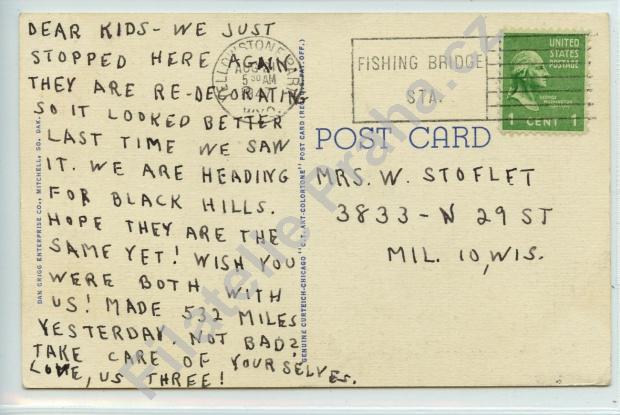 DEAR KIDS- WE JUST
STOPPED HERE AGAIN.
THEY ARE RE-DECORATING
SO IT LOOKED BETTER
LAST TIME WE SAW
IT. WE ARE HEADING
FOR BLACK HILLS.
HOPE THEY ARE THE
SAME YET! WISH YOU
WERE BOTH WITH
US! MADE 532 MILES
YESTERDAY. NOT BAD?
TAKE CARE OF YOURSELVES.
LOVE, US THREE!
YELLOWSTONE PARK
AUG
5 30 AM
1947
WYO.
FISHING BRIDGE
STA.
UNITED
STATES
POSTAGE
GEORGE WASHINGTON
1 CENT 1
POST CARD
MRS. W. STOFLET
3833-N 29 ST
MIL. 10, WIS.
DAN GRIGG ENTERPRISE CO., MITCHELL, SO. DAK.
GENUINE CURTEICH-CHICAGO "C.T. ART-COLORTONE" POST CARD (REG. U.S. PAT. OFF.)
Filatelie Praha.cz